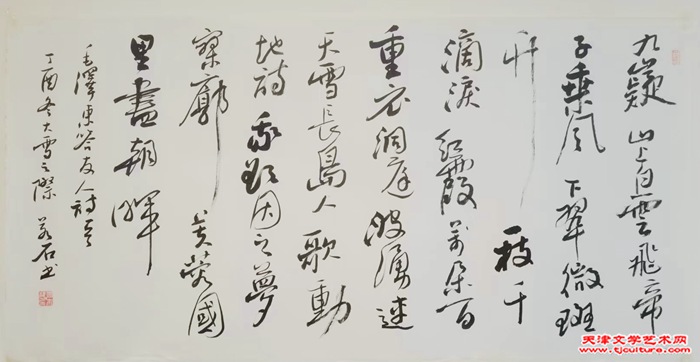 九嶷山上白雲飛帝
子乘風下翠微斑
竹一枝千
滴淚紅霞萬朵百
重衣洞庭波湧連
天雪長島人歌動
地詩我欲因之夢
寥廓芙蓉國
里盡朝暉
毛澤東答友人詩
丁酉冬大雪之際 若石书
天津文学艺术网
www.tjculture.com